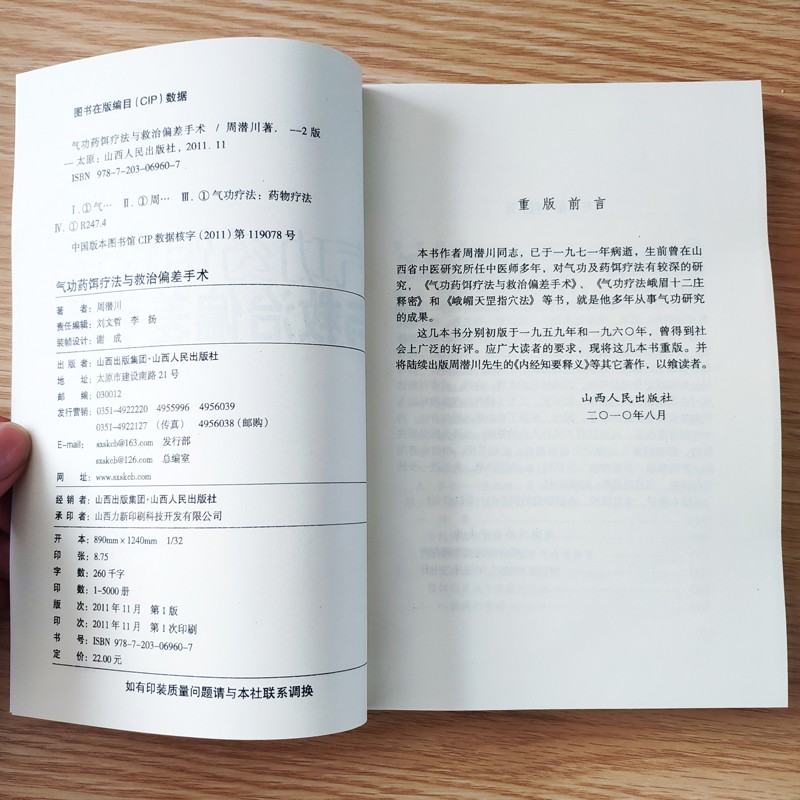 图书在版编目(CIP)数据
气功药饵疗法与救治偏差手术 / 周潜川著. —2版
—太原: 山西人民出版社, 2011.11
ISBN 978-7-203-06960-7
Ⅰ.①气… Ⅱ.①周… Ⅲ.①气功疗法: 药物疗法
Ⅳ.①R247.4
中国版本图书馆CIP数据核字(2011)第119078号
气功药饵疗法与救治偏差手术
著 者: 周潜川
责任编辑: 刘文哲 李 扬
装帧设计: 谢 成
出 版 者: 山西出版集团·山西人民出版社
地 址: 太原市建设南路21号
邮 编: 030012
发行营销: 0351-4922220 4955996 4956039
0351-4922127 (传真) 4956038(邮购)
E-mail: sxskcb@163.com 发行部
sxskcb@126.com 总编室
网 址: www.sxskcb.com
经 销 者: 山西出版集团·山西人民出版社
承 印 者: 山西力新印刷科技开发有限公司
开 本: 890mm×1240mm 1/32
印 张: 8.75
字 数: 260千字
印 数: 1-5000册
版 次: 2011年11月 第1版
印 次: 2011年11月 第1次印刷
书 号: ISBN 978-7-203-06960-7
定 价: 22.00元
如有印装质量问题请与本社联系调换
重版前言
本书作者周潜川同志，已于一九七一年病逝，生前曾在山
西省中医研究所任中医师多年，对气功及药饵疗法有较深的研
究，《气功药饵疗法与救治偏差手术》、《气功疗法峨眉十二庄
释密》和《峨嵋天罡指穴法》等书，就是他多年从事气功研究
的成果。
这几本书分别初版于一九五九年和一九六〇年，曾得到社
会上广泛的好评。应广大读者的要求，现将这几本书重版。并
将陆续出版周潜川先生的《内经知要释义》等其它著作，以飨读者。
山西人民出版社
二〇一〇年八月